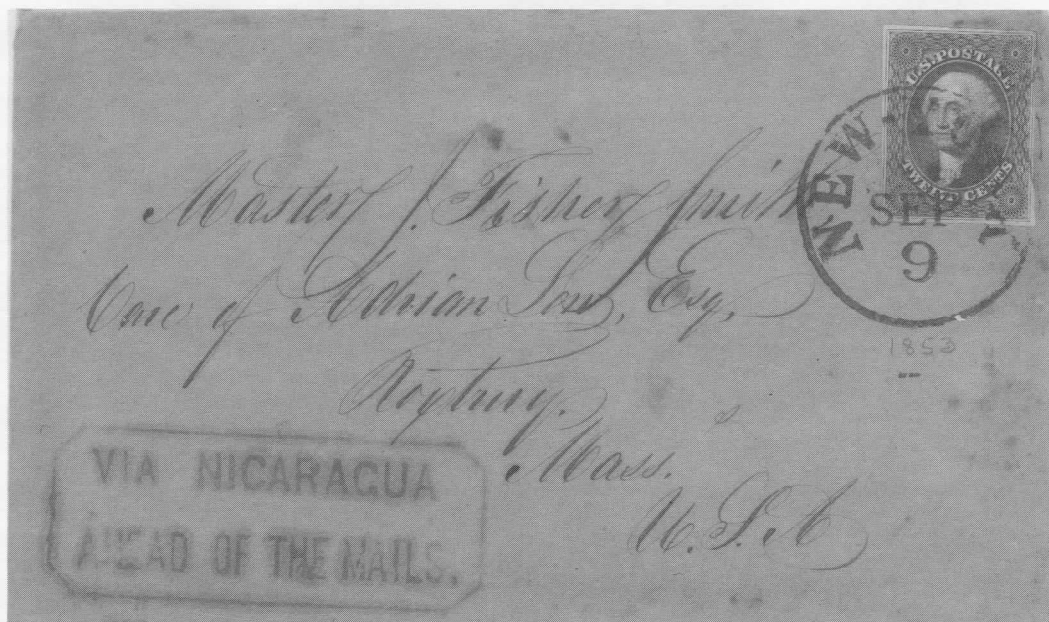 U.S. POSTAGE
TWELVE CENTS
NEW
SEP
9
1853
Master J. Fisher Smith
Care of Adrian Low, Esq,
Roxbury.
Mass.
U.S.A
VIA NICARAGUA
AHEAD OF THE MAILS.